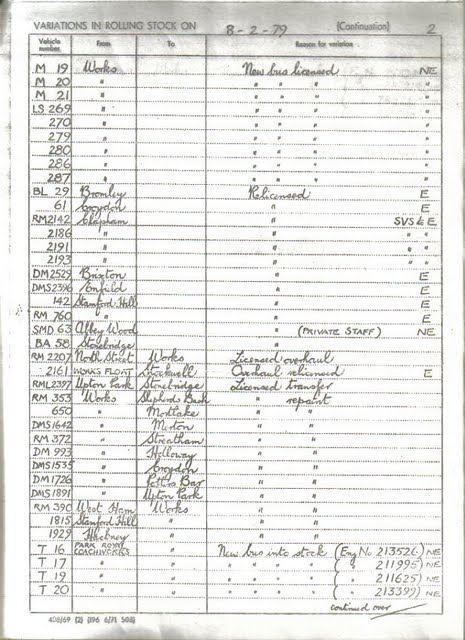 VARIATIONS IN ROLLING STOCK ON 8-2-79 (Continuation) 2
Vehicle number From To Reason for variation
M 19 Works New bus licensed NE
M 20 " " " " "
M 21 " " " " "
LS 269 " " " " "
270 " " " " "
279 " " " " "
280 " " " " "
286 " " " " "
287 " " " " "
BL 29 Bromley Relicensed E
61 Croydon " E
RM2142 Clapham " SVS & E
2186 " " " "
2191 " " " "
2193 " " " "
DM2529 Brixton " E
DMS2396 Enfield " E
142 Stamford Hill " E
RM 760 " " E
SMD 63 Abbey Wood " (PRIVATE STAFF) NE
BA 58 Stonebridge "
RM 2207 North Street Works Licensed overhaul
2161 WORKS FLOAT Stockwell Overhaul relicensed E
RML2397 Upton Park Stonebridge Licensed transfer
RM 353 Works Shepherds Bush " repaint
650 " Mortlake " "
DMS1642 " Merton " "
RM 372 " Streatham " "
DM 993 " Holloway " "
DMS1535 " Croydon " "
DM1726 " Potters Bar " "
DMS1891 " Upton Park " "
RM 390 West Ham Works " "
1815 Stamford Hill " " "
1929 Hackney " " "
T 16 PARK ROYAL COACHWORKS " New bus into stock (Eng No 213526) NE
T 17 " " " " " " ( " 211995) NE
T 19 " " " " " " ( " 211625) NE
T 20 " " " " " " ( " 213399) NE
continued over
408/69 (2) (196 6/71 50B)